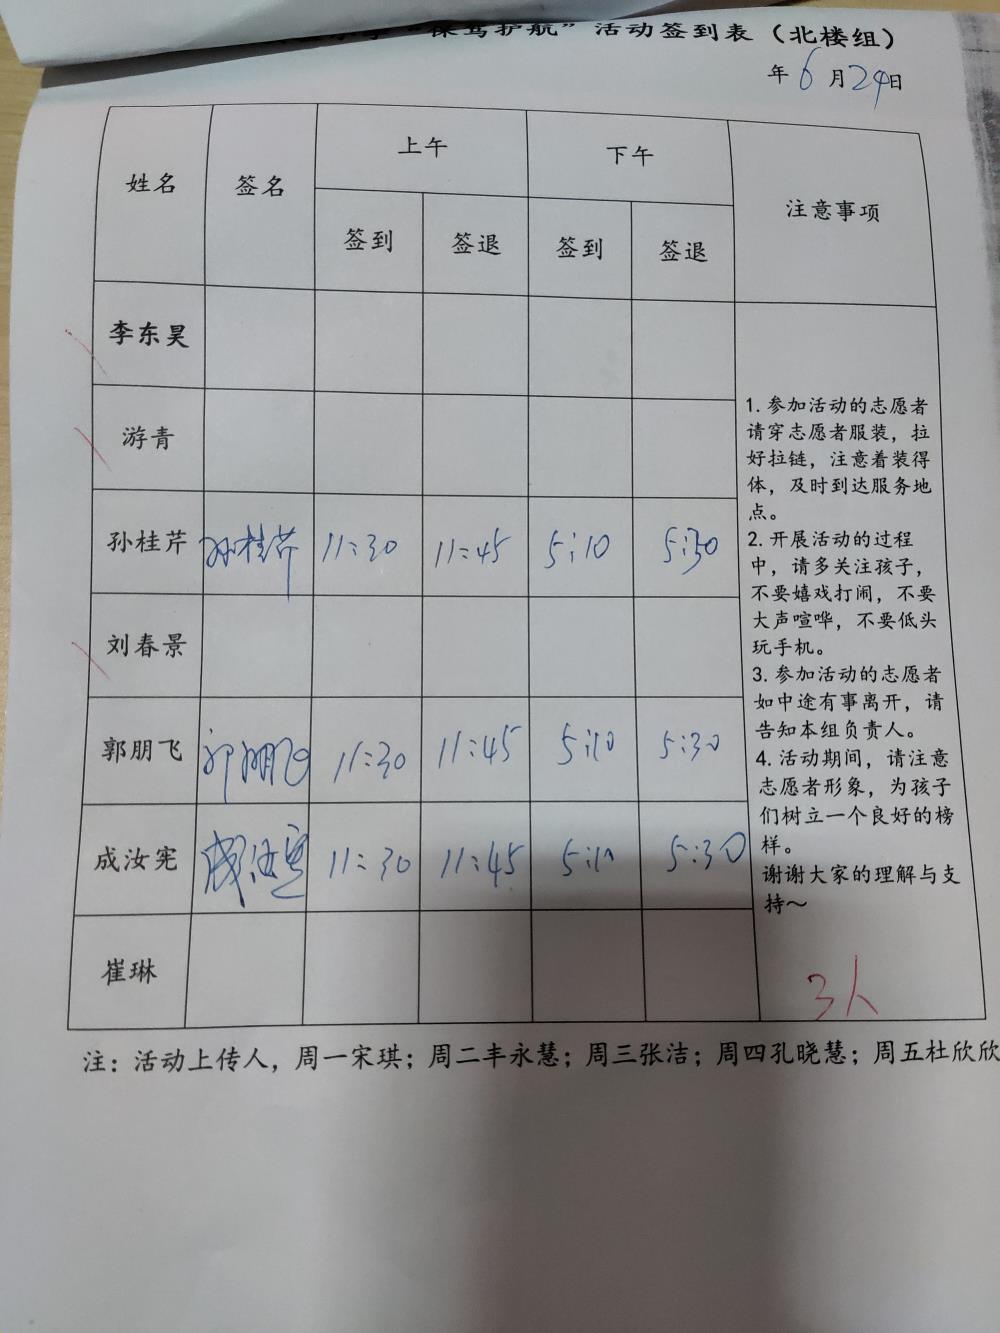 “保驾护航”活动签到表（北楼组）
年6月24日
姓名 签名 上午 下午 注意事项
签到 签退 签到 签退
李东昊
游青
孙桂芹 孙桂芹 11:30 11:45 5:10 5:30
刘春景
郭朋飞 郭朋飞 11:30 11:45 5:10 5:30
成汝宪 成汝宪 11:30 11:45 5:10 5:30
崔琳
1.参加活动的志愿者
请穿志愿者服装，拉
好拉链，注意着装得
体，及时到达服务地
点。
2.开展活动的过程
中，请多关注孩子，
不要嬉戏打闹，不要
大声喧哗，不要低头
玩手机。
3.参加活动的志愿者
如中途有事离开，请
告知本组负责人。
4.活动期间，请注意
志愿者形象，为孩子
们树立一个良好的榜
样。
谢谢大家的理解与支
持～
3人
注：活动上传人，周一宋琪；周二丰永慧；周三张洁；周四孔晓慧；周五杜欣欣